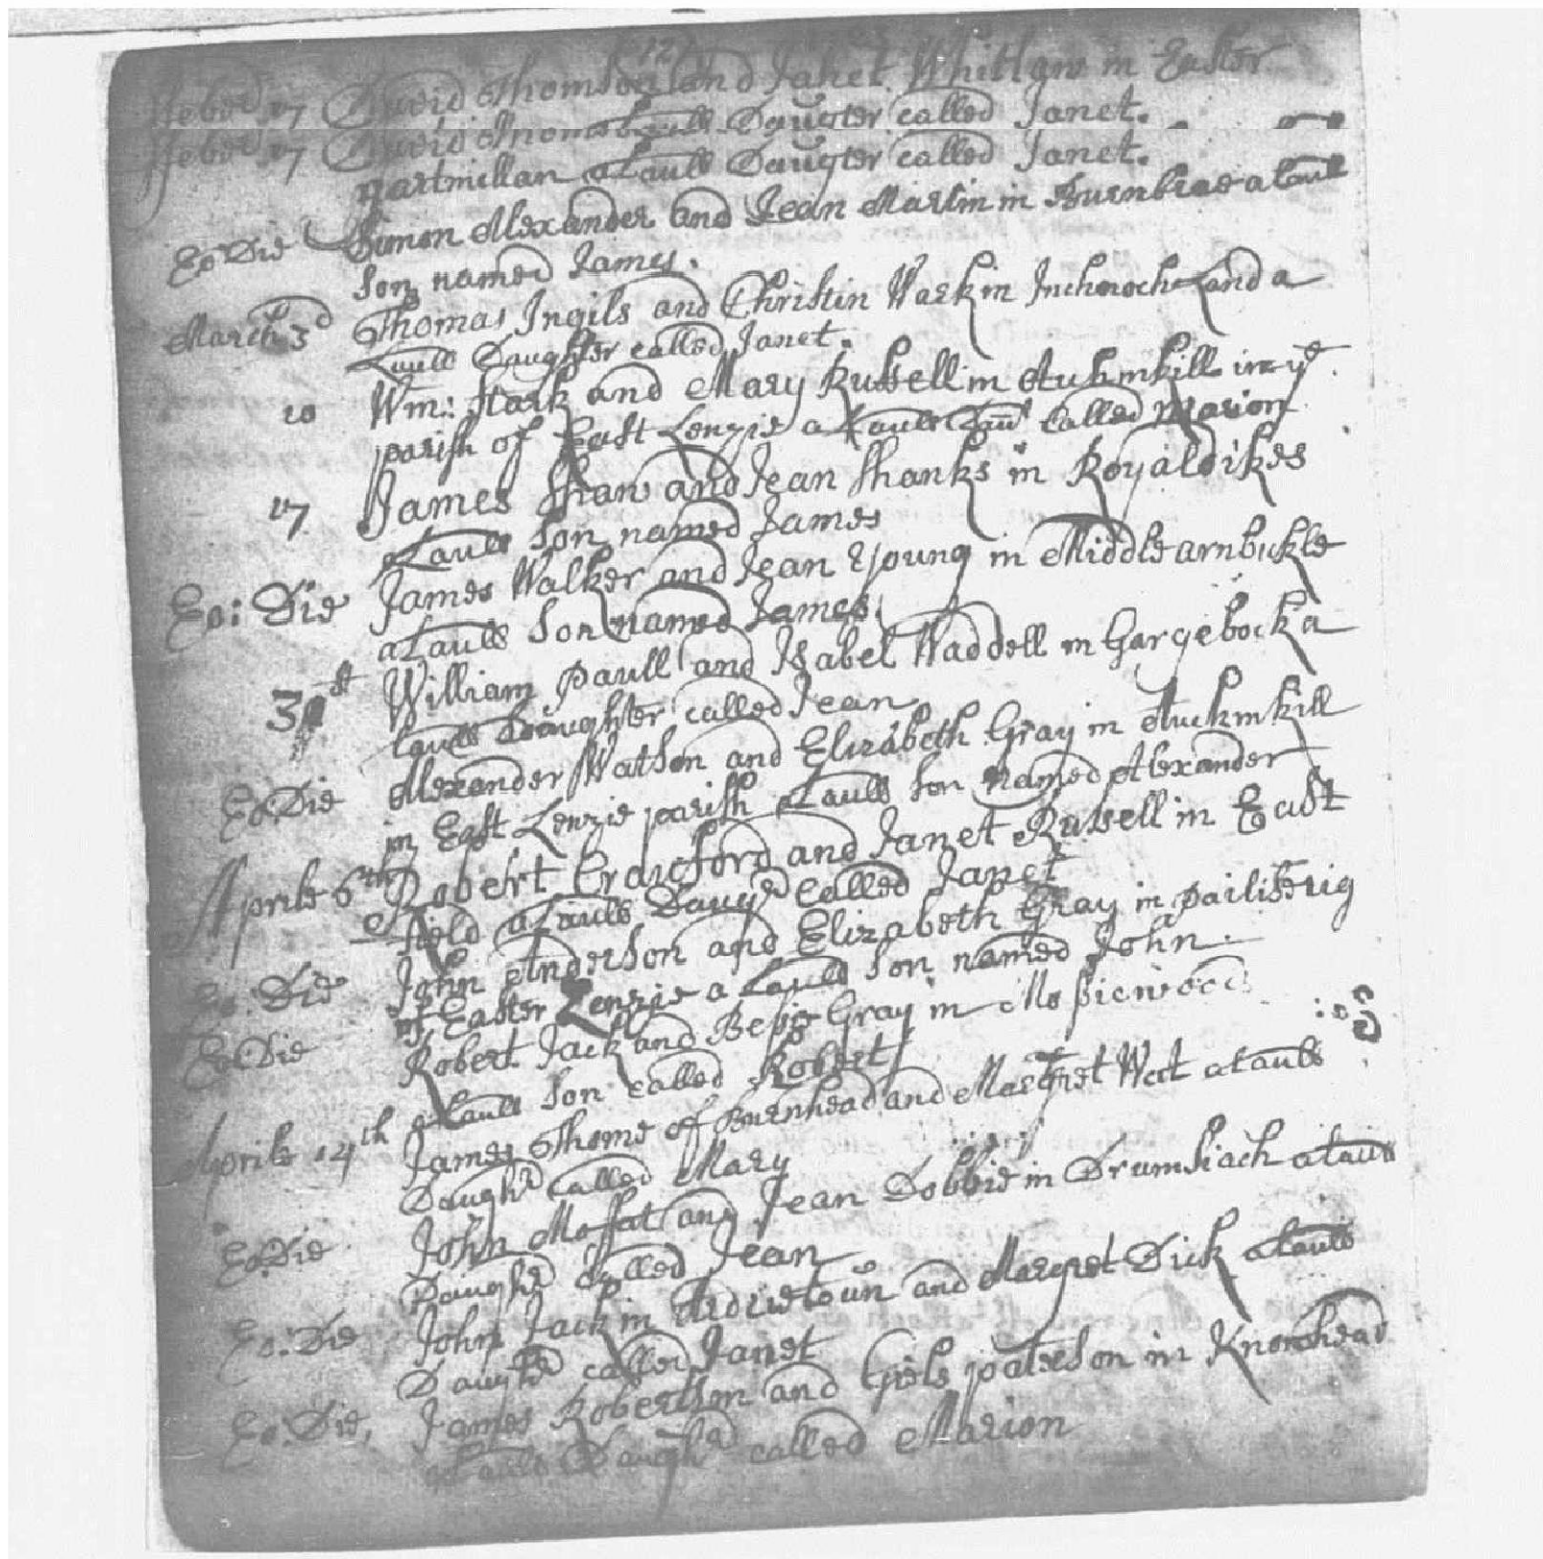 12
Febrd 17 David Thomson and Janet Whitlaw in Easter
Febrd 17 David Thomson Daugter called Janet.
gartmillan a Laull Daugter called Janet.
Eo Die Simon Alexander and Jean Martin in Burnbrae a Laull
Son named James.
March 3d Thomas Ingils and Christin Wark in Inchnoch Land a
Laull Daughter called Janet.
10 Wm: Stark and Mary Russell in Stukmkill in ye
parish of East Lenzie a Laull called Marion
17 James Shaw and Jean Shanks in Royaldikes
a Laull Son named James
Eo: Die James Walker and Jean Young in Middle arnbukle
a Laull Son named James
William Paull and Isabel Waddell in Gargebock a
Laull Daughter called Jean
Eo Die Alexander Watson and Elizabeth Gray in Stuckmkill
in East Lenzie parish a Laull Son Named Alexander
Aprile 6th Robert Crauford and Janet Russell in East
field a Laull Daugr called Janet
Eo: Die John Anderson and Elizabeth Gray in pailiterig
of Easter Lenzie a Laull Son named John.
Eo Die Robert Jack and Bessie Gray in Mossiewood
a Laull Son called Robert
Aprile 14th James Thome of Burnhead and Margret Wat a Laull
Daughr called Mary
Eo: Die John Moffat and Jean Dobbie in Drumsiach a Laull
Daughr called Jean
Eo: Die John Jack in Airdrietoun and Margret Dick a Laull
Daughr called Janet
Eo: Die, James Robertson and Griels paterson in Knowhead
a Laull Daughr called Marion